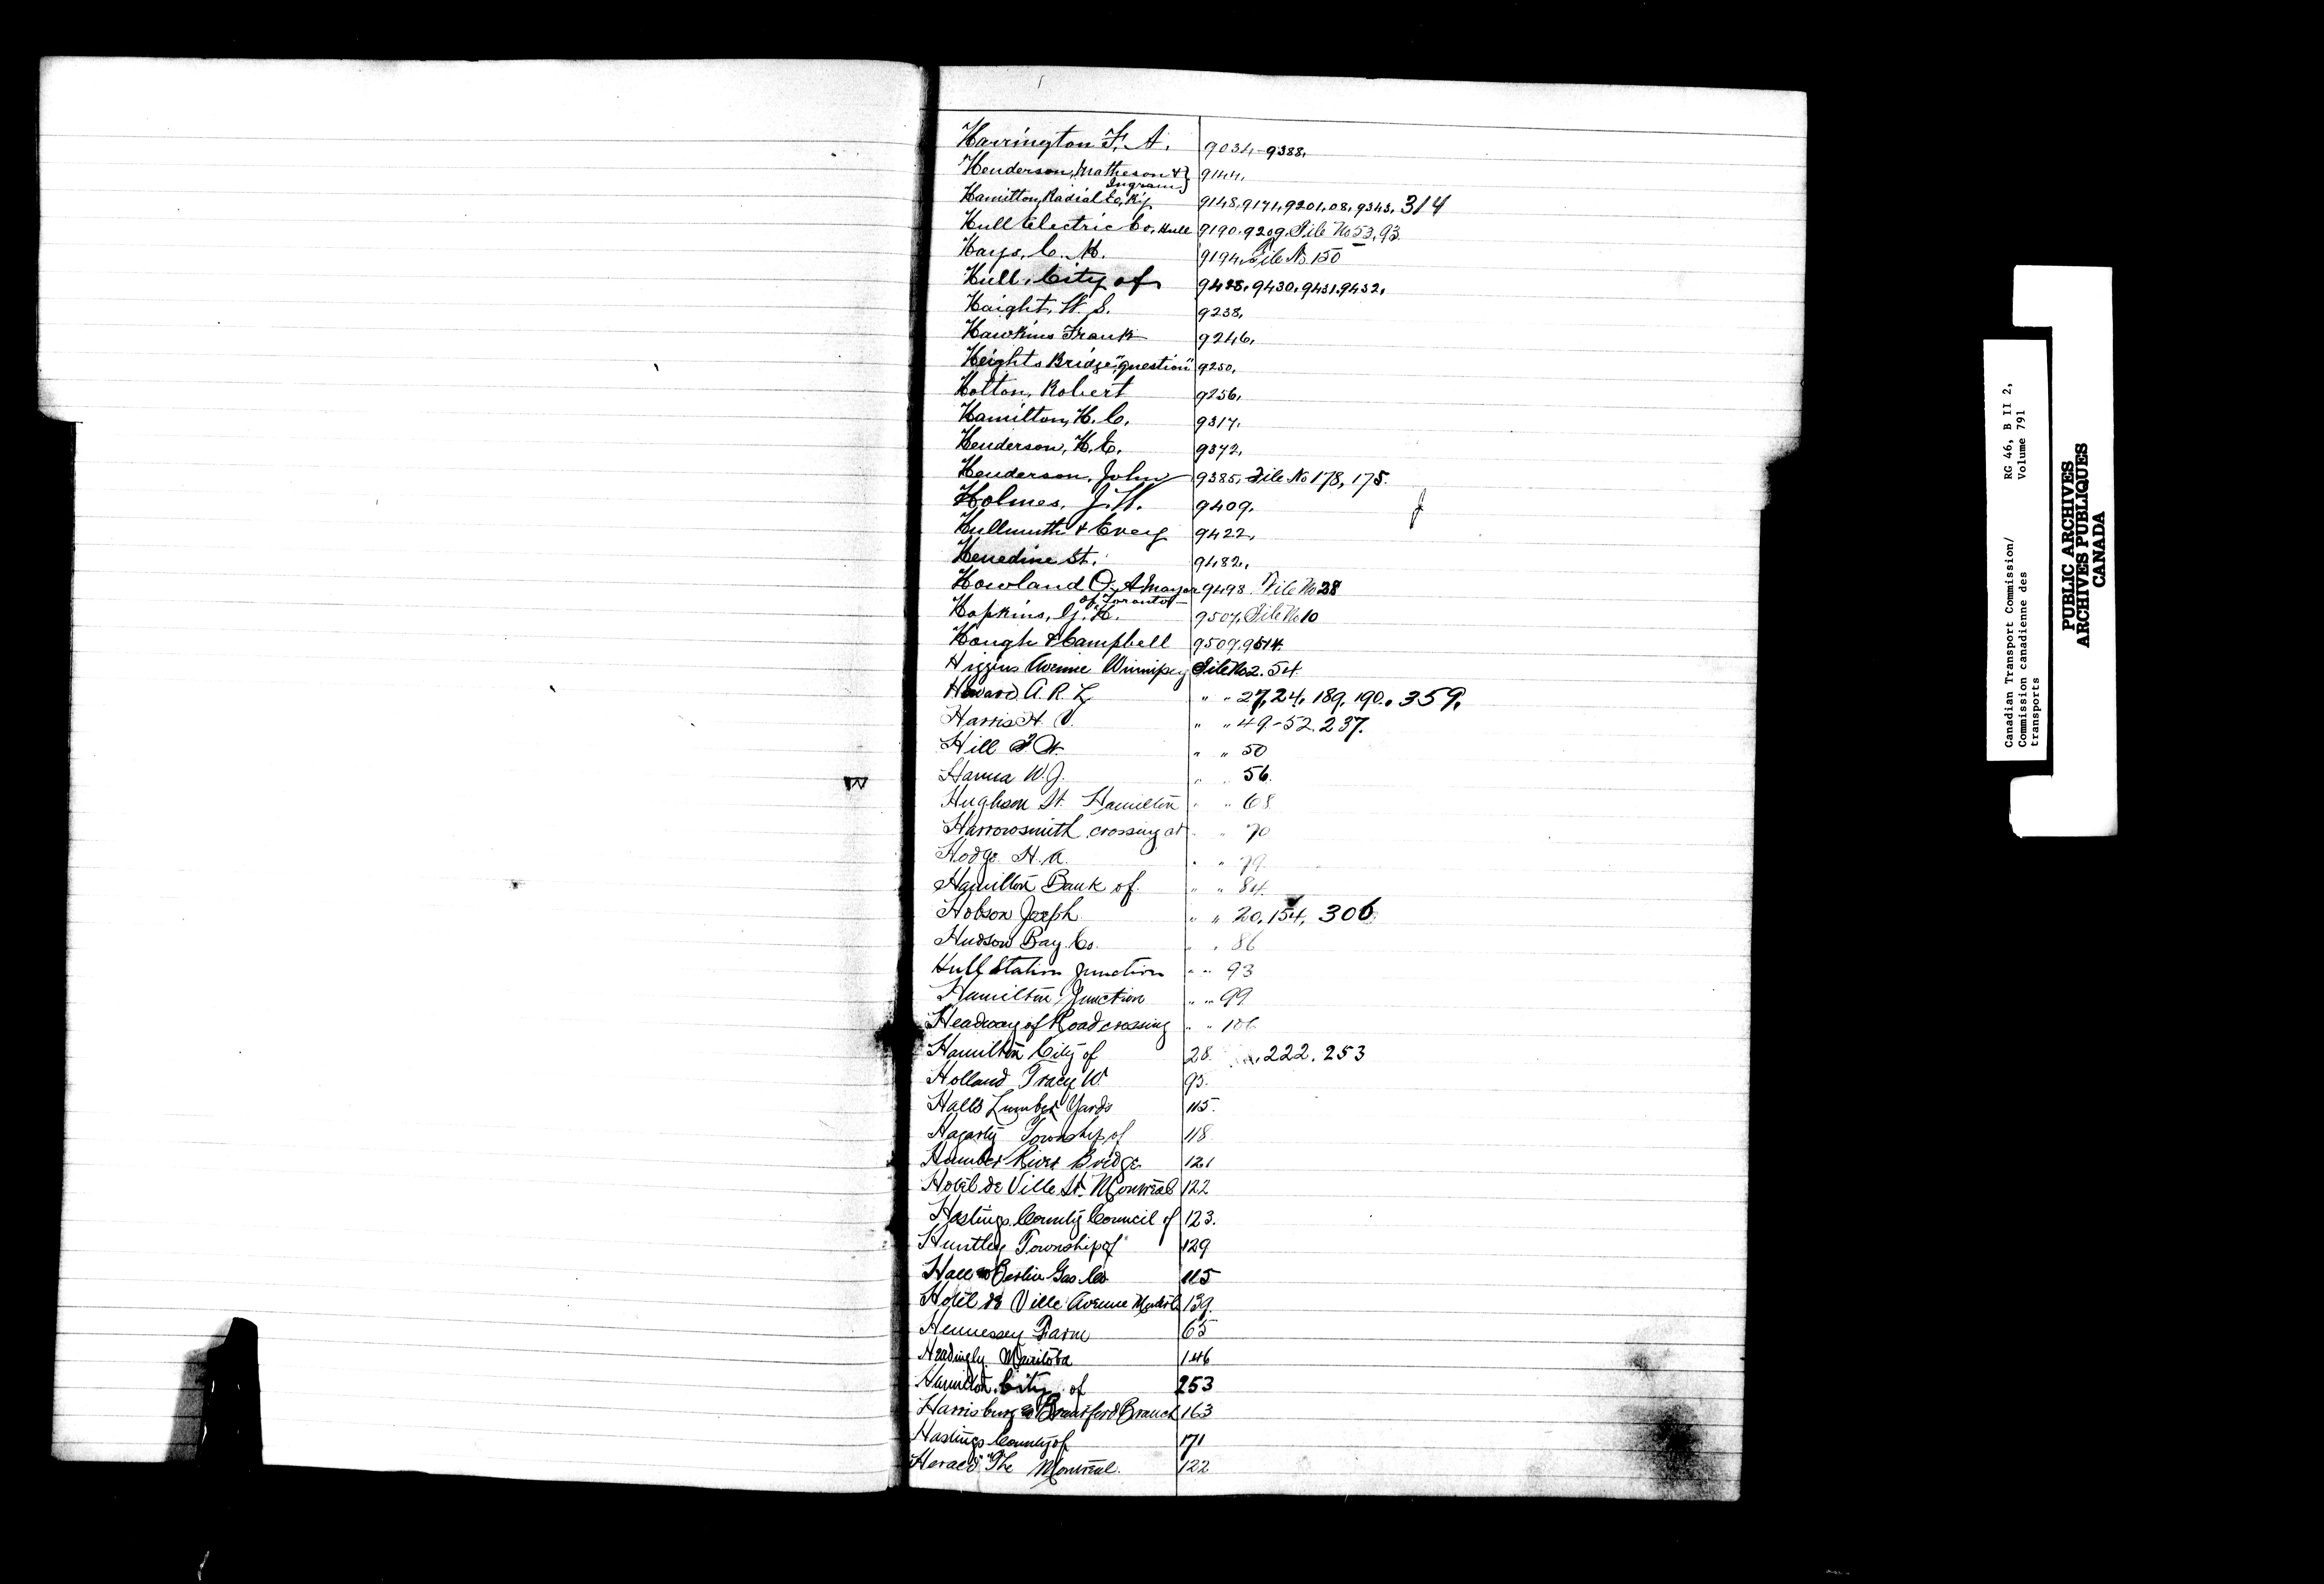 Harrington F. A. 9034-9388.
Henderson, Matheson & Ingram} 9144.
Hamilton, Radial Ec, R'y 9148, 9171, 9201, 08, 9343, 314
Hull Electric Co, Hull 9190, 9209, File No 53, 93.
Hays, C. M. 9194, File No 150
Hull, City of 9428, 9430, 9431, 9432,
Haight, W. S. 9238,
Hawkins Frank 9246,
Heights Bridge "question" 9250,
Hotton, Robert 9256,
Hamilton, H. C. 9317,
Henderson, H. E. 9372,
Henderson, John 9385, File No 178, 175.
Holmes, J. W. 9409,
Hullmuth & Ivey 9422,
Henedine St. 9482,
Howland O. A Mayor of Toronto 9498 File No 28
Hopkins, G. H. 9507, File No 10
Hough & Campbell 9509, 9514.
Higgins Avenue Winnipeg File No 2. 54.
Howard A. R. L " " 27, 24, 189, 190, 359,
Harris H. " " 49-52. 237.
Hill " " 50
Hanna W. J. " " 56.
Hughson St. Hamilton " " 68
Harrowsmith crossing at " " 70
Hodge H. A. " " 79.
Hamilton Bank of " " 84.
Hobson Joseph " " 20, 154, 306
Hudson Bay Co. " " 86
Hull Station Junction " " 93
Hamilton Junction " " 99
Headway of Road crossing " " 106
Hamilton City of 28. 222. 253
Holland Tracy W. 95.
Halls Lumber Yards 115.
Hagarty Township of 118
Humber River Bridge 121
Hotel de Ville St. Montreal 122
Hastings County Council of 123.
Huntley Township of 129
Hall Berlin Gas Co 115
Hotel de Ville Avenue 139.
Hennessey Farm 65
Headingly Manitoba 146
Hamilton, City of 253
Harrisburg & Brantford Branch 163
Hastings County of 171
Herald "The Montreal. 122
Canadian Transport Commission/ RG 46, B II 2,
Commission canadienne des Volume 791
transports
PUBLIC ARCHIVES
ARCHIVES PUBLIQUES
CANADA